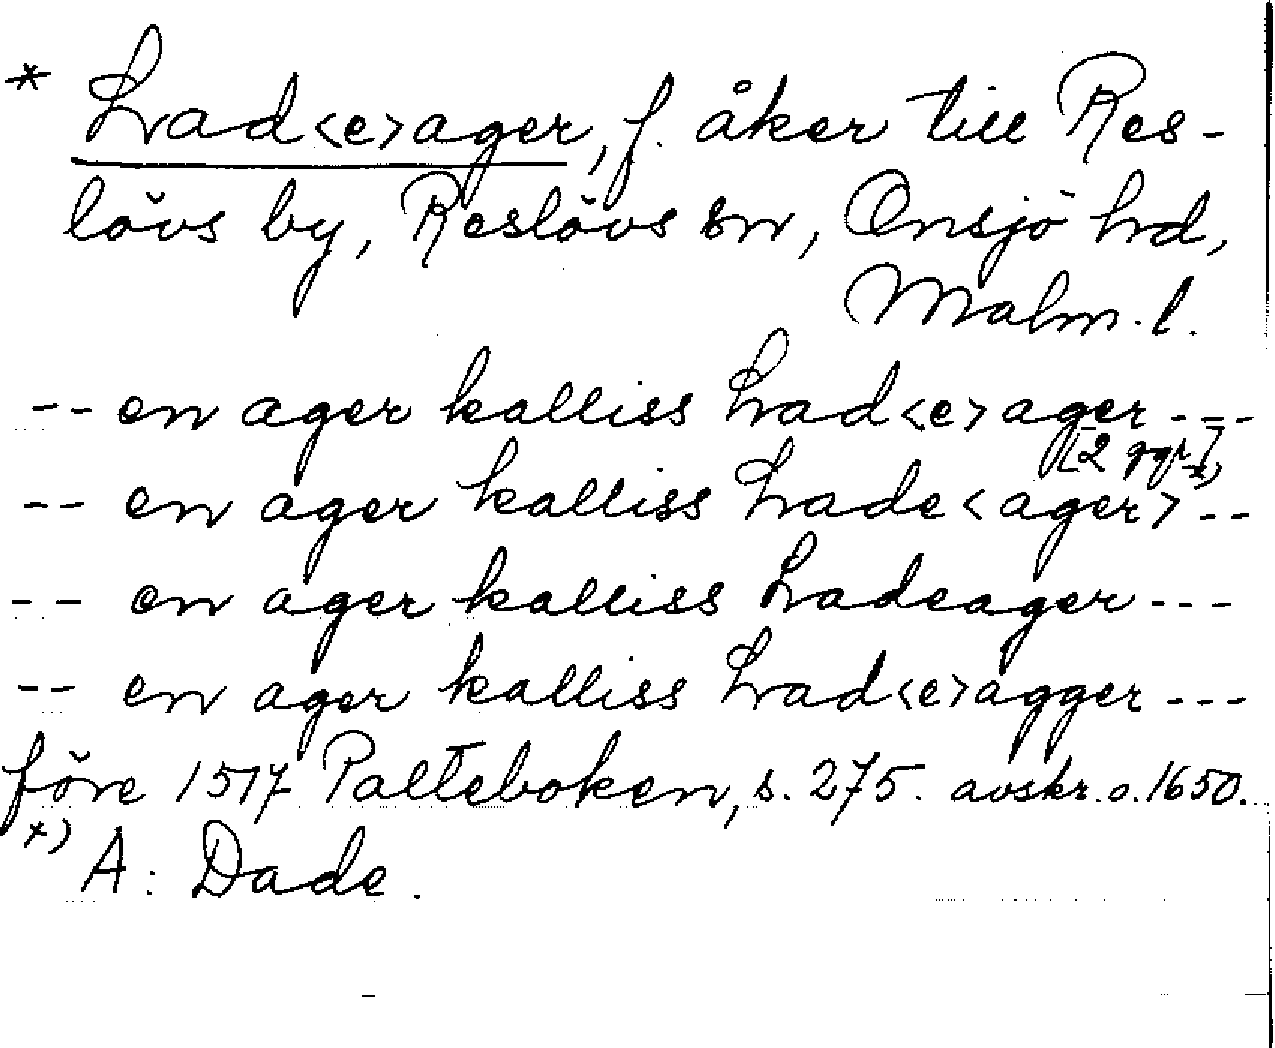 * Lad<e>ager, f. åker till Res-
lövs by, Reslövs sn, Onsjö hd,
Malm. l.
-- en ager kalliss Lad<e>ager ---
[2 ggr]
-- en ager kalliss Lade<ager> x) --
-- en ager kalliss Ladeager ---
-- en ager kalliss Lad<e>agger ---
före 1517 Palteboken, s. 275. avskr. o. 1650.
x) A: Dade.